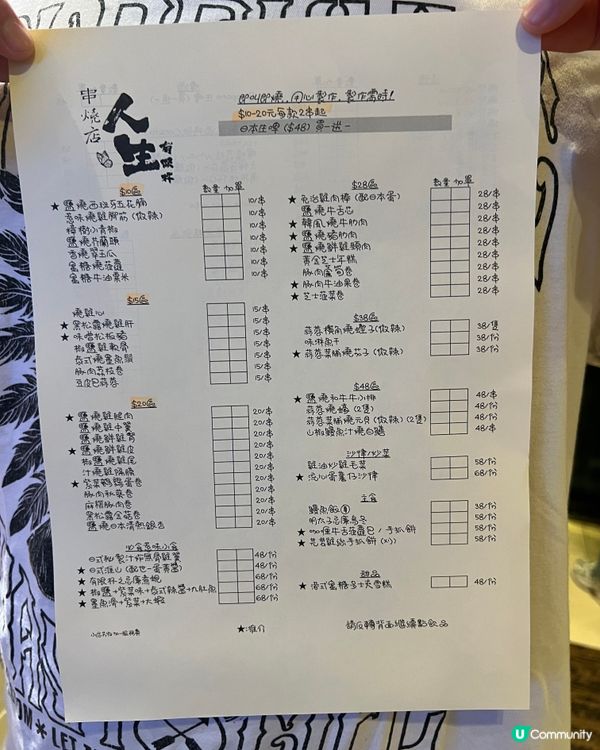 串燒店
人生
有限杯
即叫即燒，用心製作，製作需時!
$10-20元每款2串起
日本生啤 ($48) 買一送一
$10區
數量 加單
★ 鹽燒西班牙五花腩 10/串
惹味燒雞脾筋 (微辣) 10/串
10/串
10/串
10/串
蜜糖燒菠蘿 10/串
蜜糖牛油粟米 10/串
$15區
燒雞心 15/串
★ 黑松露燒雞肝 15/串
★ 味噌松板豬 15/串
椒鹽雞軟骨 15/串
泰式燒墨魚鬚 15/串
15/串
豆皮包蒜卷 15/串
$20區
★ 鹽燒雞腿肉 20/串
鹽燒雞中翼 20/串
鹽燒鮮雞腎 20/串
★ 鹽燒鮮雞皮 20/串
椒鹽燒雞尾 20/串
汁燒雞腺腺 20/串
★ 紫菜鵪鶉蛋卷 20/串
豚肉秋葵卷 20/串
麻糬豚肉卷 20/串
黑松露金菇卷 20/串
鹽燒日本清熱銀杏 20/串
必食惹味小食
日式秘製汁炸無骨雞翼 48/份
★ 日式淮山 (配世一蛋黃醬) 48/份
★ 有限杯之品庫煮蜆 68/份
★ 椒鹽+紫菜味+泰式辣醬+九肚魚 68/份
★ 墨魚滑+紫菜+大蝦 68/份
$28區
數量 加單
★ 免治雞肉棒 (配日本蛋) 28/串
鹽燒牛舌芯 28/串
★ 韓風燒牛肋肉 28/串
★ 鹽燒豬肋肉 28/串
★ 鹽燒鮮雞頸肉 28/串
黃金芝士年糕 28/串
豚肉蘆筍卷 28/串
★ 豚肉牛油果卷 28/串
★ 芝士菠菜卷 28/串
$38區
蒜蓉欖角燒蟶子 (微辣) 38/隻
味淋魚干 38/份
★ 蒜蓉菜脯燒茄子 (微辣) 38/份
$48區
★ 鹽燒和牛牛小排 48/串
蒜蓉燒蠔 (2隻) 48/份
蒜蓉菜脯燒元貝 (微辣) (2隻) 48/份
山椒鰻魚汁燒白鱔 48/串
沙律/炒菜
雞油炒雞毛菜 58/份
★ 流心蛋薯仔沙律 68/份
主食
鰻魚飯 38/份
明太子品庫烏冬 58/份
★ 咖喱牛舌菠蘿包 / 手抓餅 58/份
★ 芫茜雞絲手抓餅 (少) 58/份
甜品
★ 港式蜜糖多士夾雪糕 48/份
小店另收加一服務費
★:推介
請反轉背面繼續點飲品
U Community